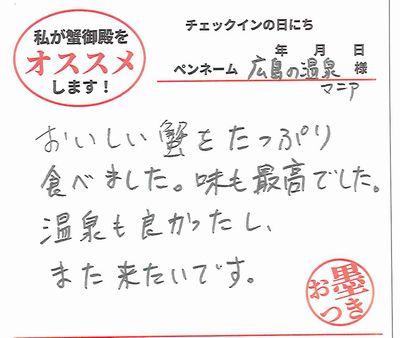 私が蟹御殿を
オススメ
します！
チェックインの日にち
年 月 日
ペンネーム 広島の温泉 様
マニア
おいしい蟹をたっぷり
食べました。味も最高でした。
温泉も良かったし、
また来たいです。
お墨つき